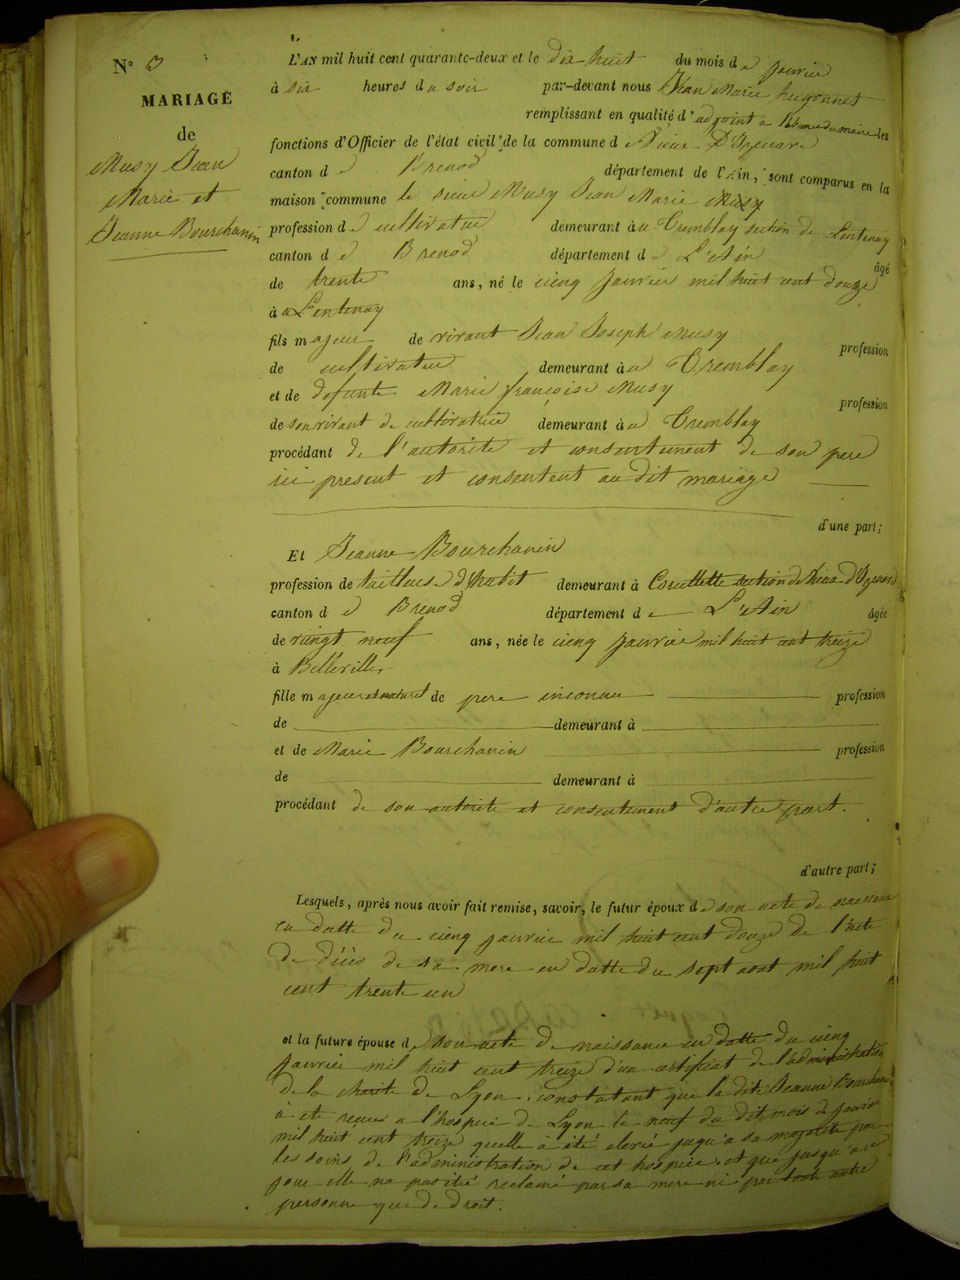 N° 3
MARIAGE
de
Musy Jean
Marie et
Jeanne Bourchanin
L'AN mil huit cent quarante-deux et le dix huit du mois de janvier
à six heures du soir par-devant nous Jean Marie hugonnet
remplissant en qualité d'adjoint a du maire les
fonctions d'Officier de l'état civil de la commune de Vieux D'Izenave
canton de Brenod département de l'Ain, sont comparus en la
maison commune le sieur Musy Jean Marie Musy
profession de cultivateur demeurant à au Tremblay section de Lentenay
canton de Brenod département de L'Ain âgé
de trente ans, né le cinq janvier mil huit cent douze
à a Lentenay
fils majeur de vivant Jean Joseph Musy profession
de cultivateur demeurant à au Tremblay
et de defunte Marie françoise Musy profession
de son vivant de cultivatrice demeurant à au Tremblay
procédant de l'autorité et consentement de son pere
ici present et consentent au dit mariage
d'une part;
Et Jeanne Bourchanin
profession de tailleuse d'habit demeurant à Corcellette section de Vieux-d'Izenave
canton de Brenod département de L'Ain âgée
de vaingt neuf ans, née le cinq janvier mil huit cent treize
à Belleville
fille majeur et naturel de pere inconnu profession
de demeurant à
et de Marie Bourchanin profession
de demeurant à
procédant de son autorité et consentement d'autre part.
d'autre part;
Lesquels, après nous avoir fait remise, savoir, le futur époux de son acte de naissance
en datte du cinq janvier mil huit cent douze de l'acte
de décès de sa mere en datte du sept aout mil huit
cent trente un
et la future épouse de son acte de naissance en datte du cinq
janvier mil huit cent treize d'un certificat de l'administration
de la charité de Lyon, constatant que la dite Jeanne Bourchanin
a été recue a l'hospice de Lyon le neuf du dit mois de janvier
mil huit cent treize quelle a été elevé jusqu'a sa majorité par
les soins de l'administration de cet hospice, et que jusqu'a ce
jour elle na pas été reclamé par sa mere ni par toute autre
personne que de droit.